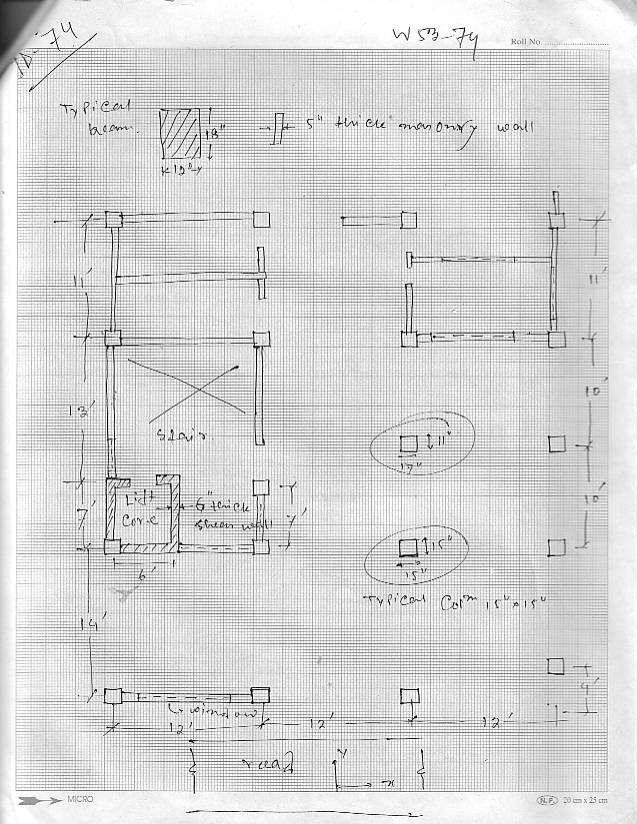 ID-74
W53-74
Roll No.
Typical
beam.
18"
12"
5" thick masonry wall
11'
11'
13'
10'
stair.
11"
17"
10'
7'
Lift
Core
6" thick
shear wall
7'
6'
15"
15"
Typical Colm 15" x 15"
14'
4'
window
12'
12'
12'
road
y
x
MICRO
N.P. 20 cm x 25 cm